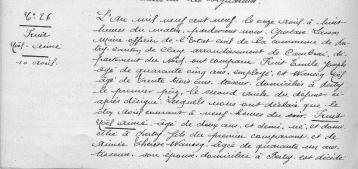 N° 26
Fruit
Noël Aimé
10 avril.
L'An mil neuf cent neuf, le onze avril à huit
heures du matin, pardevant nous, Gustave
Maire officier de l'Etat civil de la commune de
canton de arrondissement de Cambrai, dé-
partement du Nord, ont comparu Fruit Emile Joseph
âgé de quarante cinq ans, employé, et
âgé de trente trois ans, domiciliés à
le premier père, le second oncle du défunt ci-
après désigné. Lesquels nous ont déclaré que le
dix avril courant à neuf heures du soir, Fruit
Noël Aimé, âgé de deux ans, et demi, né et domi-
cilié à fils du premier comparant et de
Aimée âgée de quarante un ans
son épouse, domiciliée à est décédé